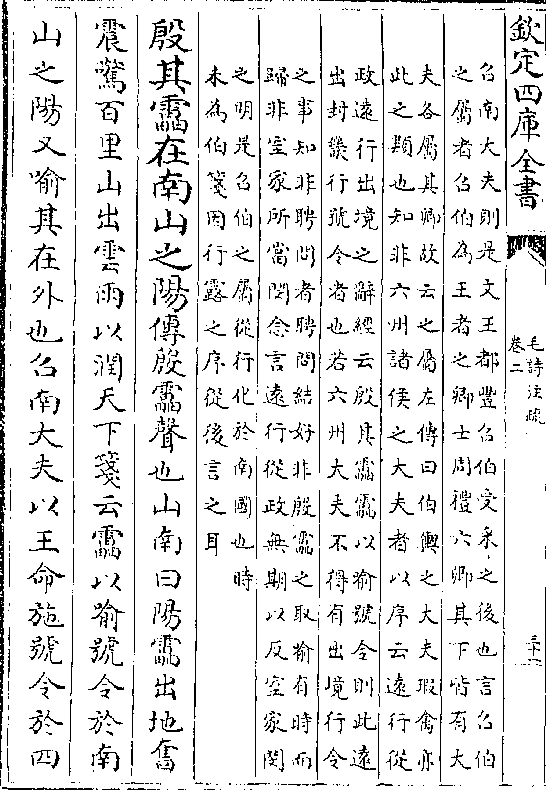 欽定四庫全書
毛詩注疏
卷二
召南大夫則是文王都豐召伯受采之後也言召伯
之屬者召伯為王者之卿士周禮六卿其下皆有大
夫各屬其卿故云之屬左傳曰伯輿之大夫瑕禽亦
此之類也知非六州諸侯之大夫者以序云遠行從
政遠行出境之辭經云殷其靁靁以喻號令則此遠
出封畿行號令者也若六州大夫不得有出境行令
之事知非聘問者聘問結好非殷靁之取喻有時而
歸非室家所當閔念言遠行從政無期以反室家閔
之明是召伯之屬從行化於南國也時
未為伯箋因行露之序從後言之耳
殷其靁在南山之陽傳殷靁聲也山南曰陽靁出地奮
震驚百里山出雲雨以潤天下箋云靁以喻號令於南
山之陽又喻其在外也召南大夫以王命施號令於四